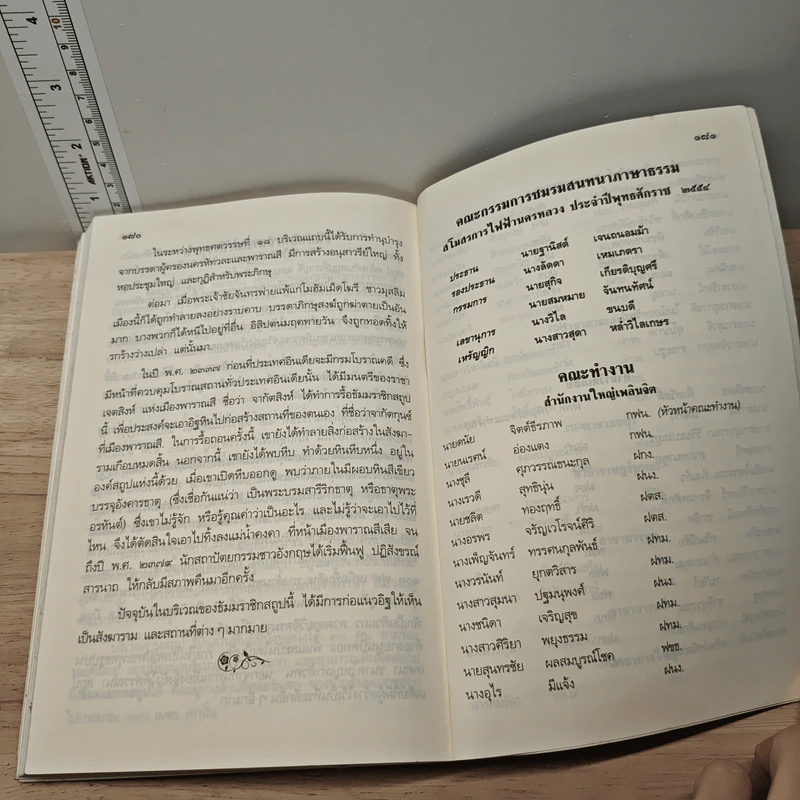 ๑๘๐
ในระหว่างพุทธศตวรรษที่ ๑๘ บริเวณแถบนี้ได้รับการทำนุบำรุง
จากบรรดาผู้ครองนครหัทวละและพาราณสี มีการสร้างอนุสาวรีย์ใหญ่ ทั้ง
หอประชุมใหญ่ และกุฏิสำหรับพระภิกษุ
ต่อมา เมื่อพระเจ้าชัยจันทรพ่ายแพ้แก่โมฮัมเม็ดโฆรี ชาวมุสลิม
เมืองนี้ก็ได้ถูกทำลายลงอย่างราบคาบ บรรดาภิกษุสงฆ์ถูกฆ่าตายเป็นอัน
มาก บางพวกก็ได้หนีไปอยู่ที่อื่น อิสิปตนมฤคทายวัน จึงถูกทอดทิ้งให้
รกร้างว่างเปล่า แต่นั้นมา
ในปี พ.ศ. ๒๓๓๗ ก่อนที่ประเทศอินเดียจะมีกรมโบราณคดี ซึ่ง
มีหน้าที่ควบคุมโบราณสถานทั่วประเทศอินเดียนั้น ได้มีมนตรีของราชา
เจตสิงห์ แห่งเมืองพาราณสี ชื่อว่า จากัตสิงห์ ได้ทำการรื้อธัมมราชิกสถูป
นี้ เพื่อประสงค์จะเอาอิฐหินไปก่อสร้างสถานที่ของตนเอง ที่ชื่อว่าจากัตกุนซ์
ที่เมืองพาราณสี. ในการรื้อถอนครั้งนี้ เขายังได้ทำลายสิ่งก่อสร้างในสังฆา-
รามเกือบหมดสิ้น นอกจากนี้ เขายังได้พบหีบ ทำด้วยหินหีบหนึ่ง อยู่ใน
องค์สถูปแห่งนี้ด้วย เมื่อเขาเปิดหีบออกดู พบว่าภายในมีผอบหินสีเขียว
บรรจุอังคารธาตุ (ซึ่งเชื่อกันแน่ว่า เป็นพระบรมสารีริกธาตุ หรือธาตุพระ
อรหันต์) ซึ่งเขาไม่รู้จัก หรือรู้คุณค่าว่าเป็นอะไร และไม่รู้ว่าจะเอาไปไว้ที่
ไหน จึงได้ตัดสินใจเอาไปทิ้งลงแม่น้ำคงคา ที่หน้าเมืองพาราณสีเสีย จน
ถึงปี พ.ศ. ๒๓๗๙ นักสถาปัตยกรรมชาวอังกฤษได้เริ่มฟื้นฟู ปฏิสังขรณ์
สารนาถ ให้กลับมีสภาพคืนมาอีกครั้ง
ปัจจุบันในบริเวณของธัมมราชิกสถูปนี้ ได้มีการก่อแนวอิฐให้เห็น
เป็นสังฆาราม และสถานที่ต่าง ๆ มากมาย
๑๘๑
คณะกรรมการชมรมสนทนาภาษาธรรม
สโมสรการไฟฟ้านครหลวง ประจำปีพุทธศักราช ๒๕๕๔
ประธาน นายฐานิสต์ เจนถนอมม้า
รองประธาน นางลัดดา เหมเภตรา
กรรมการ นายสุกิจ เกียรติบุญศรี
นายสมหมาย จันทนทัศน์
เลขานุการ นางวิไล ขนบดี
เหรัญญิก นางสาวสุดา หล่ำวิไลเกษร
คณะทำงาน
สำนักงานใหญ่เพลินจิต
นายดนัย จิตต์ธีรภาพ กฟน. (หัวหน้าคณะทำงาน)
นายนเรศน์ อ่องแตง กฟน.
นางชุลี ศุภวรรณธนะกุล ฝกง.
นางเรวดี สุทธินุ่น ฝนง.
นายชลิต ทองฤทธิ์ ฝตส.
นางอรพร จรัญเวโรจน์ศิริ ฝตส.
นางเพ็ญจันทร์ ทรรศนกุลพันธ์ ฝทม.
นางวรนันท์ ยุกตวิสาร ฝทม.
นางสาวสุมนา ปฐมนุพงศ์ ฝนง.
นางชนิดา เจริญสุข ฝทม.
นางสาวศิริยา พยุงธรรม ฝทม.
นายสุนทรชัย ผลสมบูรณ์โชค ฟขธ.
นางอุไร มีแจ้ง ฝนง.
ACTION
2
3
4
5
6
7
8
9
10